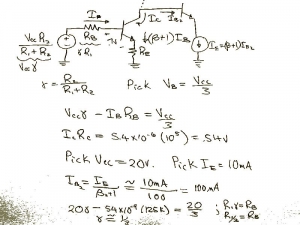 I_B I_C I_B₂
V_CC R₂ / (R₁ + R₂)
R_B
γR₁
↓(β+1)I_B
R_E
V_CC γ
γ = R₂ / (R₁ + R₂) Pick V_B = V_CC / 3
V_CC γ − I_B R_B = V_CC / 3
= 5.4×10⁻⁶ (10⁵) = .54V
Pick V_CC = 20V. Pick I_E = 10mA
I_B₂ = I_E / (β₂+1) ≈ 10mA / 100 = 100mA
20γ − 5.4×10⁻⁶ (125K) = 20 / 3 ; R₁γ = R_B
γ ≈ 1/2 R₁/₂ = R_B